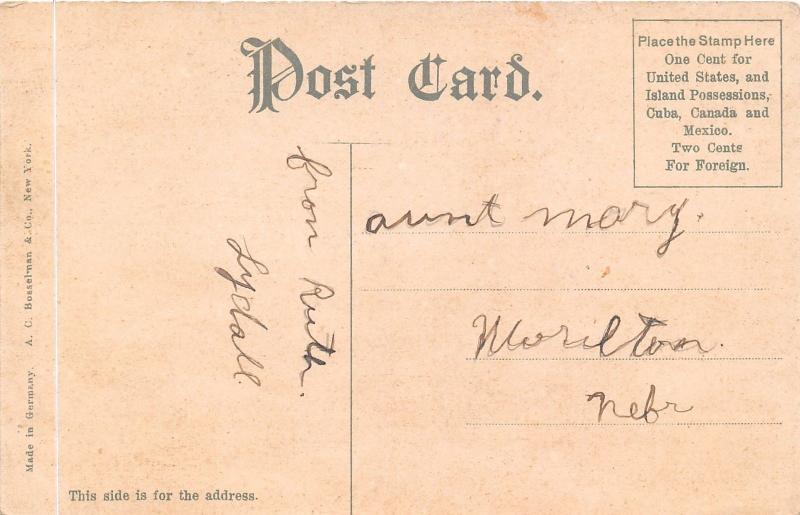 Post Card.
Place the Stamp Here
One Cent for
United States, and
Island Possessions,
Cuba, Canada and
Mexico.
Two Cents
For Foreign.
Made in Germany. A. C. Bosselman & Co., New York.
from Ruth.
Lydall.
aunt mary.
Nebr
This side is for the address.